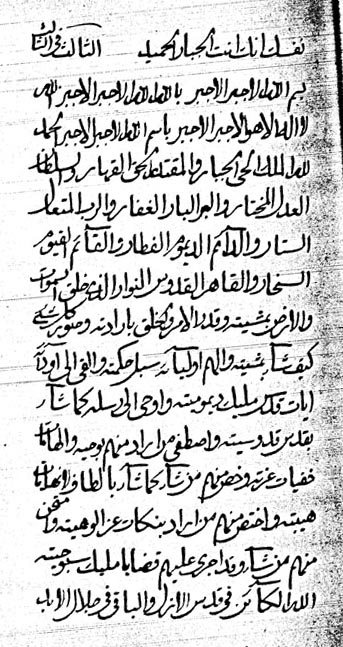 نفسك انك انت الجبار الحميد الثالث في الثالث
بسم الله الاجبر الاجبر بالله الله الاجبر الاجبر الله
لا اله الا هو الاجبر الاجبر باسم الله الاجبر الاجبر الحمد
لله الملك الحي الجبار والمقتدر الحي القهار والسلطان
العدل المختار والبر البار الغفار والرب المتعال
الستار والدائم الديوم الفطار والقائم القيوم
السخار والقاهر القدوس النوار الذي خلق السموات
والارض بمشيته وقدر الامر والخلق بارادته وصور كل شيء
كيف شاء بمشيته والهم اوليائه سبل حكمته والقى الى
ايات قدس مليك ديموميته واوحى الى رسله كما شاء
بقدس قدوسيته واصطفى من اراد منهم بوحيه والهامات
خفيات عزته وخص منهم من شاء كما شاء بالطاف
هيبته واختص منهم من اراد بنكات عز الوهيته وامتحن
منهم من شاء وقد اجرى عليهم قضايا مليك سبوحيته
الله الكائن في قدس الازل والباقي في جلال الابد